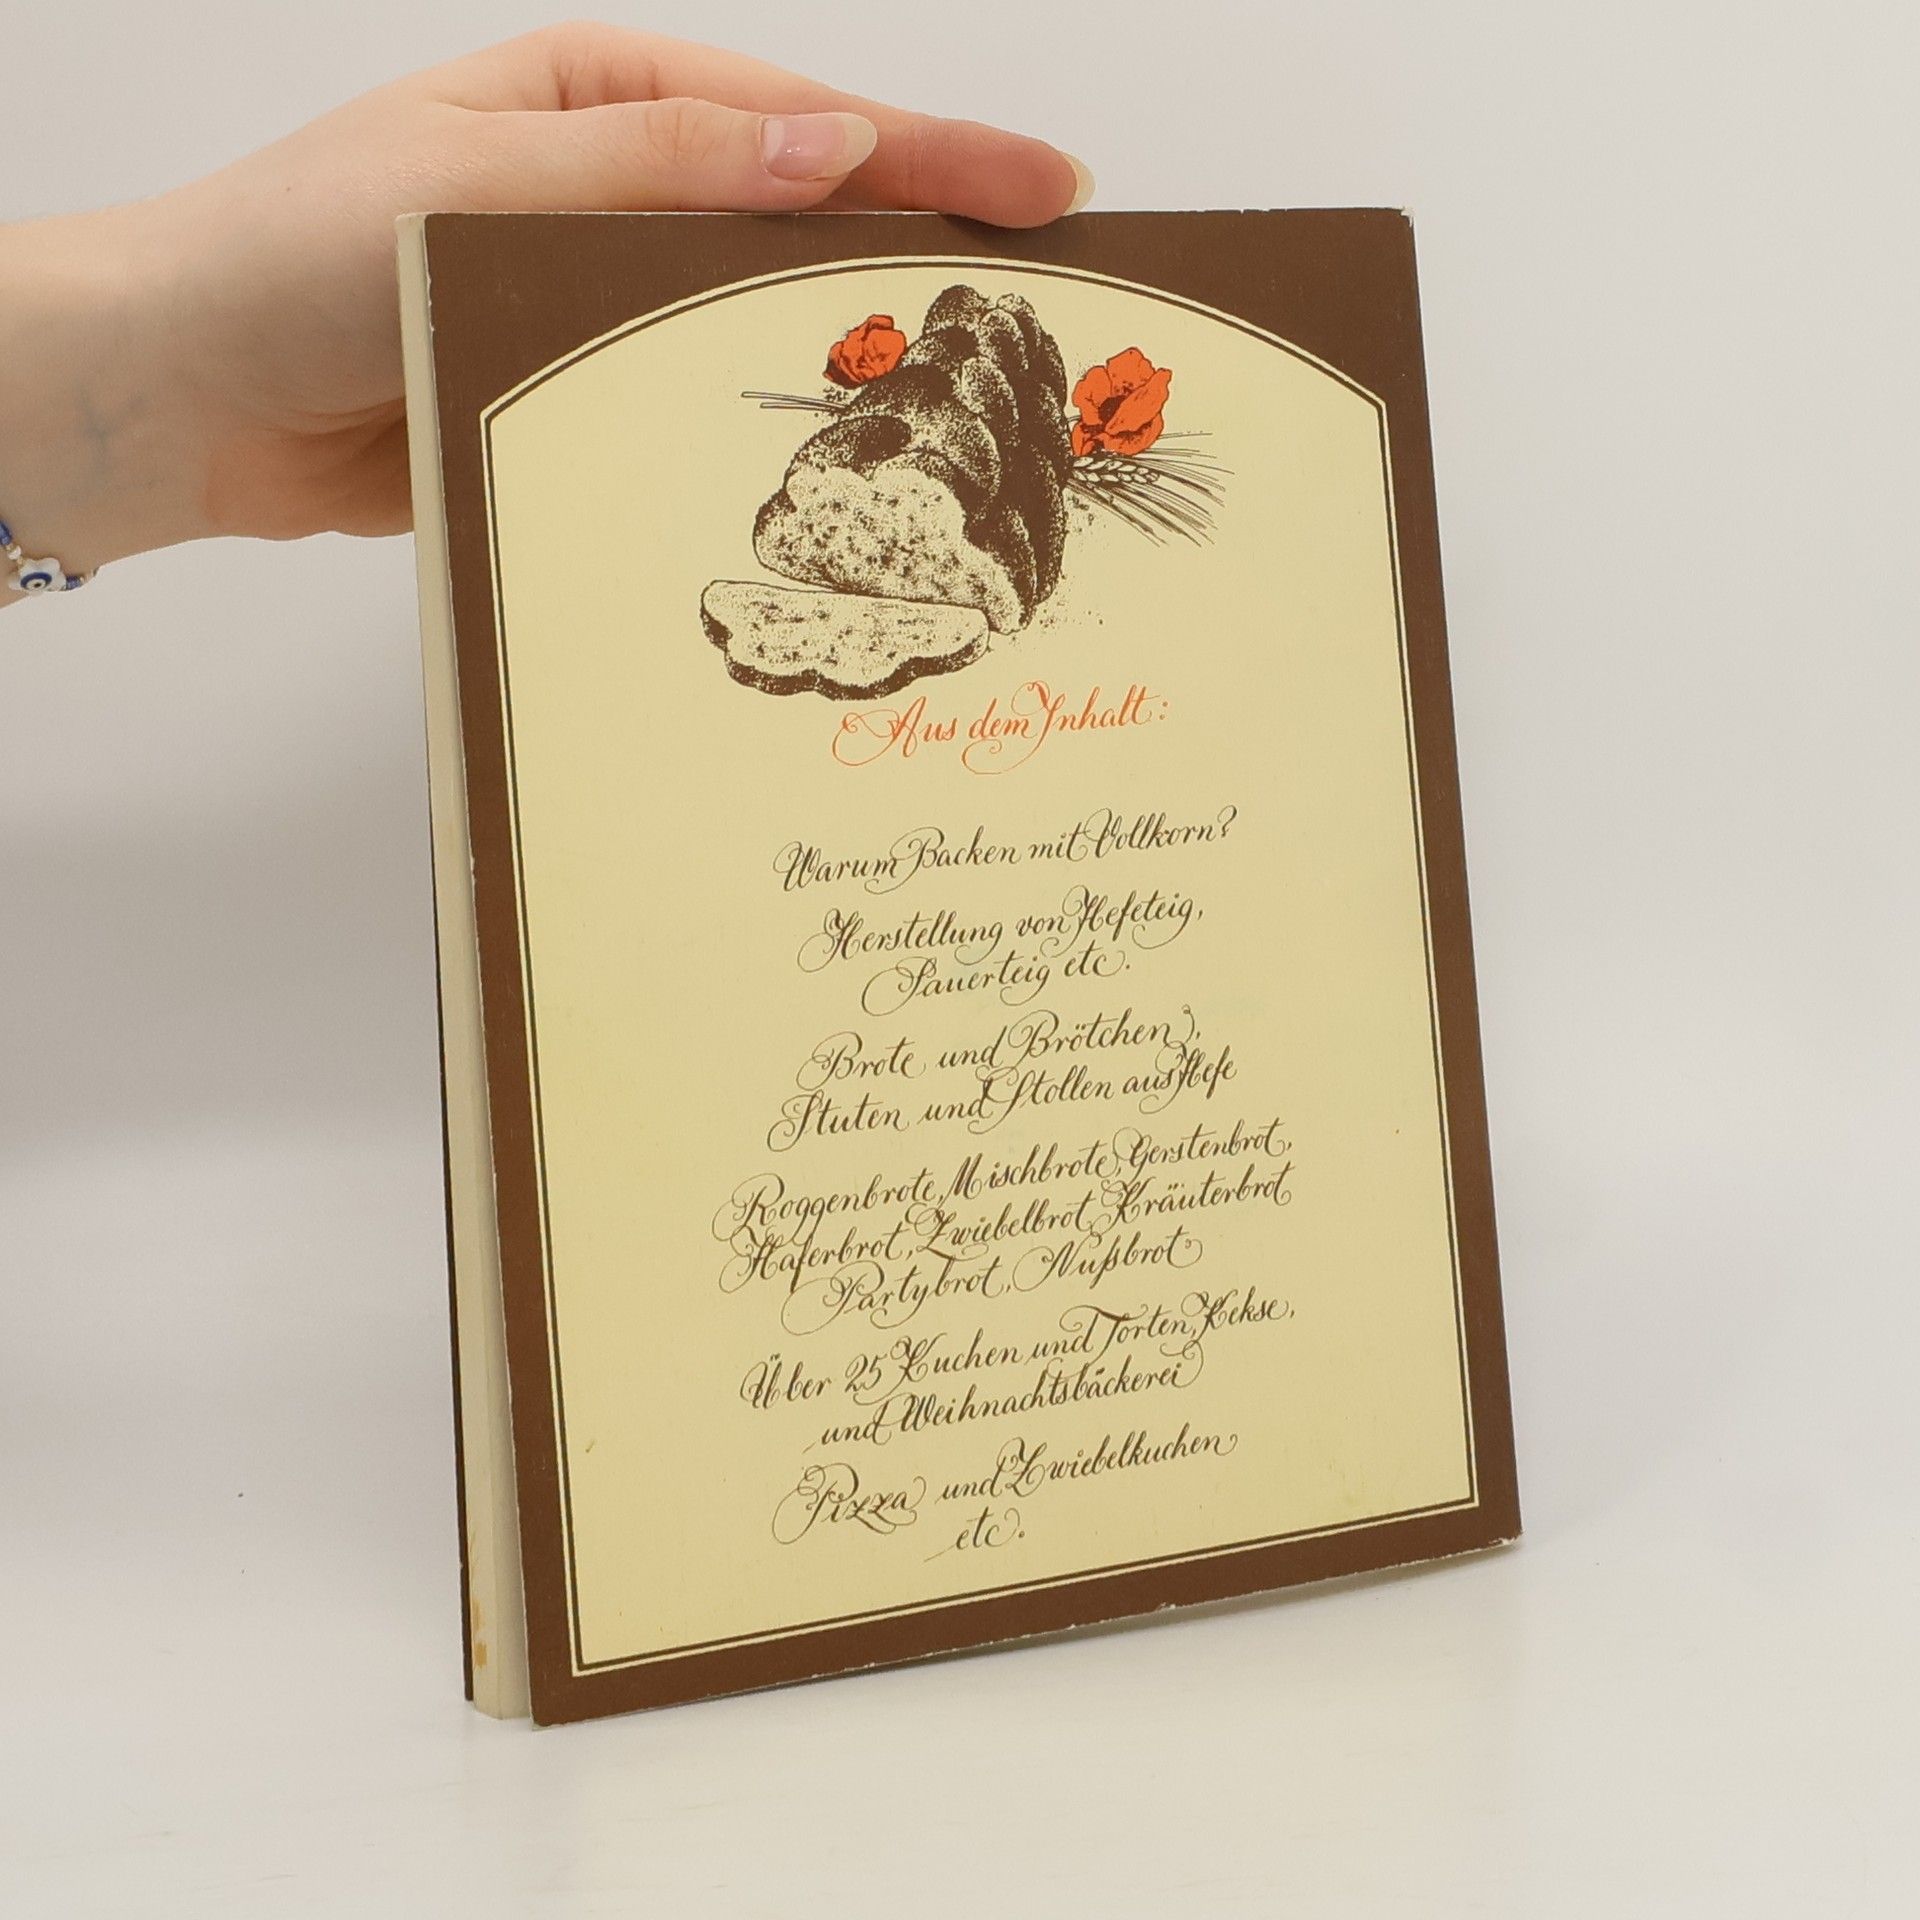 Aus dem Inhalt:
Warum Backen mit Vollkorn?
Herstellung von Hefeteig,
Sauerteig etc.
Brote und Brötchen,
Stuten und Stollen aus Hefe
Roggenbrote, Mischbrote, Gerstenbrot,
Haferbrot, Zwiebelbrot, Kräuterbrot
Partybrot, Nußbrot
Über 25 Kuchen und Torten, Kekse,
und Weihnachtsbäckerei
Pizza und Zwiebelkuchen
etc.